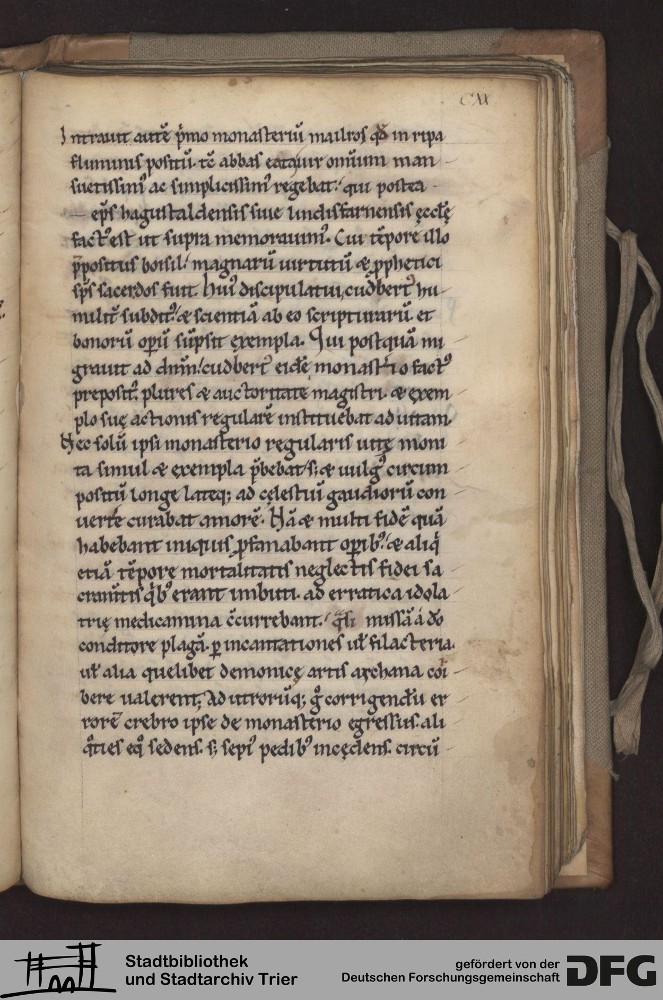 CXI
Intrauit autē p̄mo monasteriū mailros qđ in ripa
fluminis positū. tc̄ abbas eata uir omnium man
suetissimꝰ ac simplicissimꝰ regebat. qui postea
ep̄s hagustaldensis siue lindisfarnensis ęcclę
factꝰ est ut supra memorauimꝰ. Cui tēpore illo
p̄positus boisil magnarū uirtutū & ꝓphetici
sp̄s sacerdos fuit. Huiꝰ discipulatui cudbertꝰ hu
milit̄ subditꝰ & scientiā ab eo scripturarū et
bonorū operū sūpsit exempla. Qui postquā mi
grauit ad dn̄m cudbertꝰ eidē monast̄io factꝰ
prepositꝰ. plures & auctoritate magistri. & exem
plo suę actionis regularē instituebat ad uitam.
Nec solū ipsi monasterio regularis uitę moni
ta simul & exempla p̄bebat. s; & uulgꝰ circum
positū longe lateq; ad cęlestiū gaudiorū con
uert̄e curabat amorē. Nā & multi fidē quā
habebant iniquis ꝓfanabant operibꝰ & aliq̄
etiā tēpore mortalitatis neglectis fidei sa
cramītis q̄bꝰ erant imbuti. ad erratica idola
trię medicamina c̄currebant. q̄si missā a dō
conditore plagā. ꝑ incantationes uł filacteria.
uł alia quelibet demonicę artis archana coi
bere ualerent. Ad utrorūq; g̊ corrigendū er
rorē crebro ipse de monasterio egressus. ali
q̄ties eq̊ sedens. s; sepiꝰ pedibꝰ incędens. circū
Stadtbibliothek
und Stadtarchiv Trier
gefördert von der
Deutschen Forschungsgemeinschaft
DFG